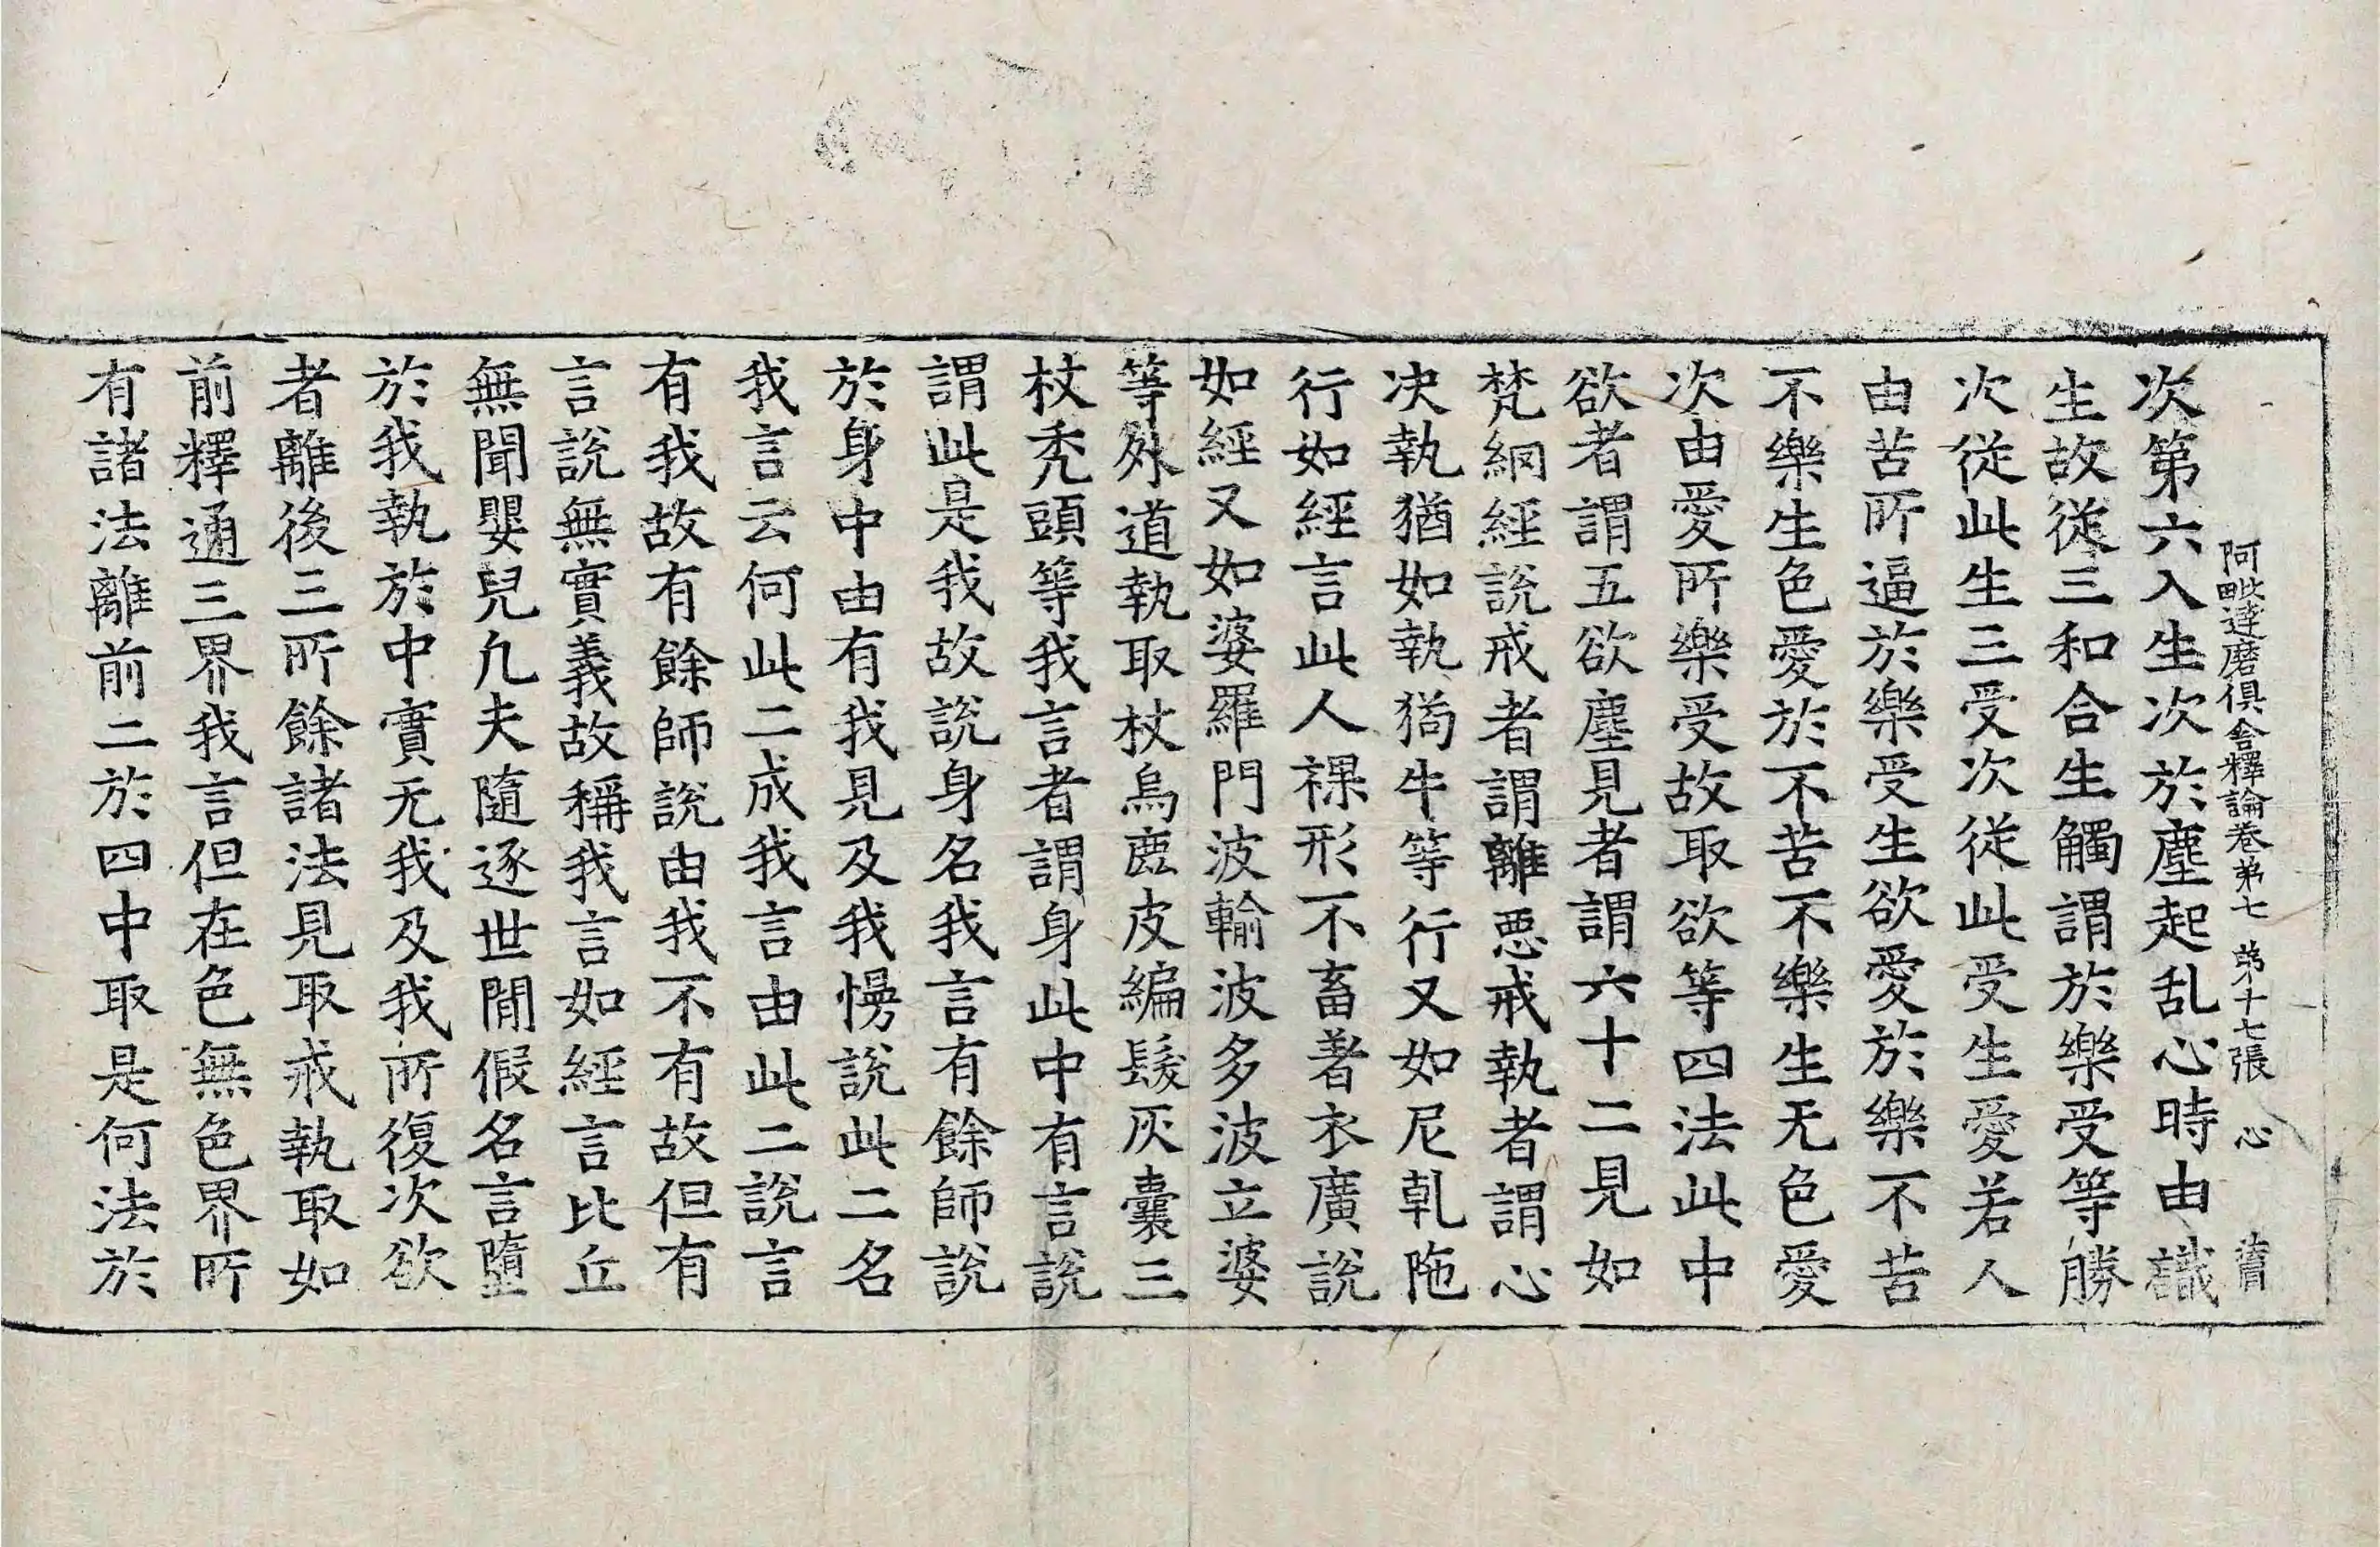 阿毗達磨俱舍釋論卷苐七 苐十七張 心
次第六入生次於塵起乱心時由識
生故從三和合生觸謂於樂受等勝
次從此生三受次從此受生愛若人
由苦所逼於樂受生欲愛於樂不苦
不樂生色愛於不苦不樂生无色愛
次由愛所樂受故取欲等四法此中
欲者謂五欲塵見者謂六十二見如
梵網經說戒者謂離惡戒執者謂心
決執猶如執猗牛等行又如尼乹陁
行如經言此人裸形不畜著衣廣說
如經又如婆羅門波輸波多波立婆
等外道執取杖烏鹿皮編髮灰囊三
杖禿頭等我言者謂身此中有言說
謂此是我故說身名我言有餘師說
於身中由有我見及我慢說此二名
我言云何此二成我言由此二說言
有我故有餘師說由我不有故但有
言說無實義故稱我言如經言比丘
無聞嬰兒凢夫隨逐世間假名言墮
於我執於中實无我及我所復次欲
者離後三所餘諸法見取戒執取如
前釋通三界我言但在色無色界所
有諸法離前二於四中取是何法於